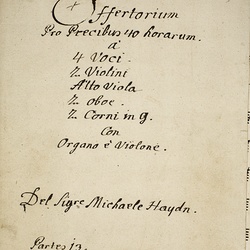 Offertorium
Pro Precibus 40 horarum.
à
4 Voci.
2 Violini
Alto Viola
2 Oboe.
2 Corni in g.
Con
Organo è Violone.
Del Sigre Michaele Haydn.
Partes 13.